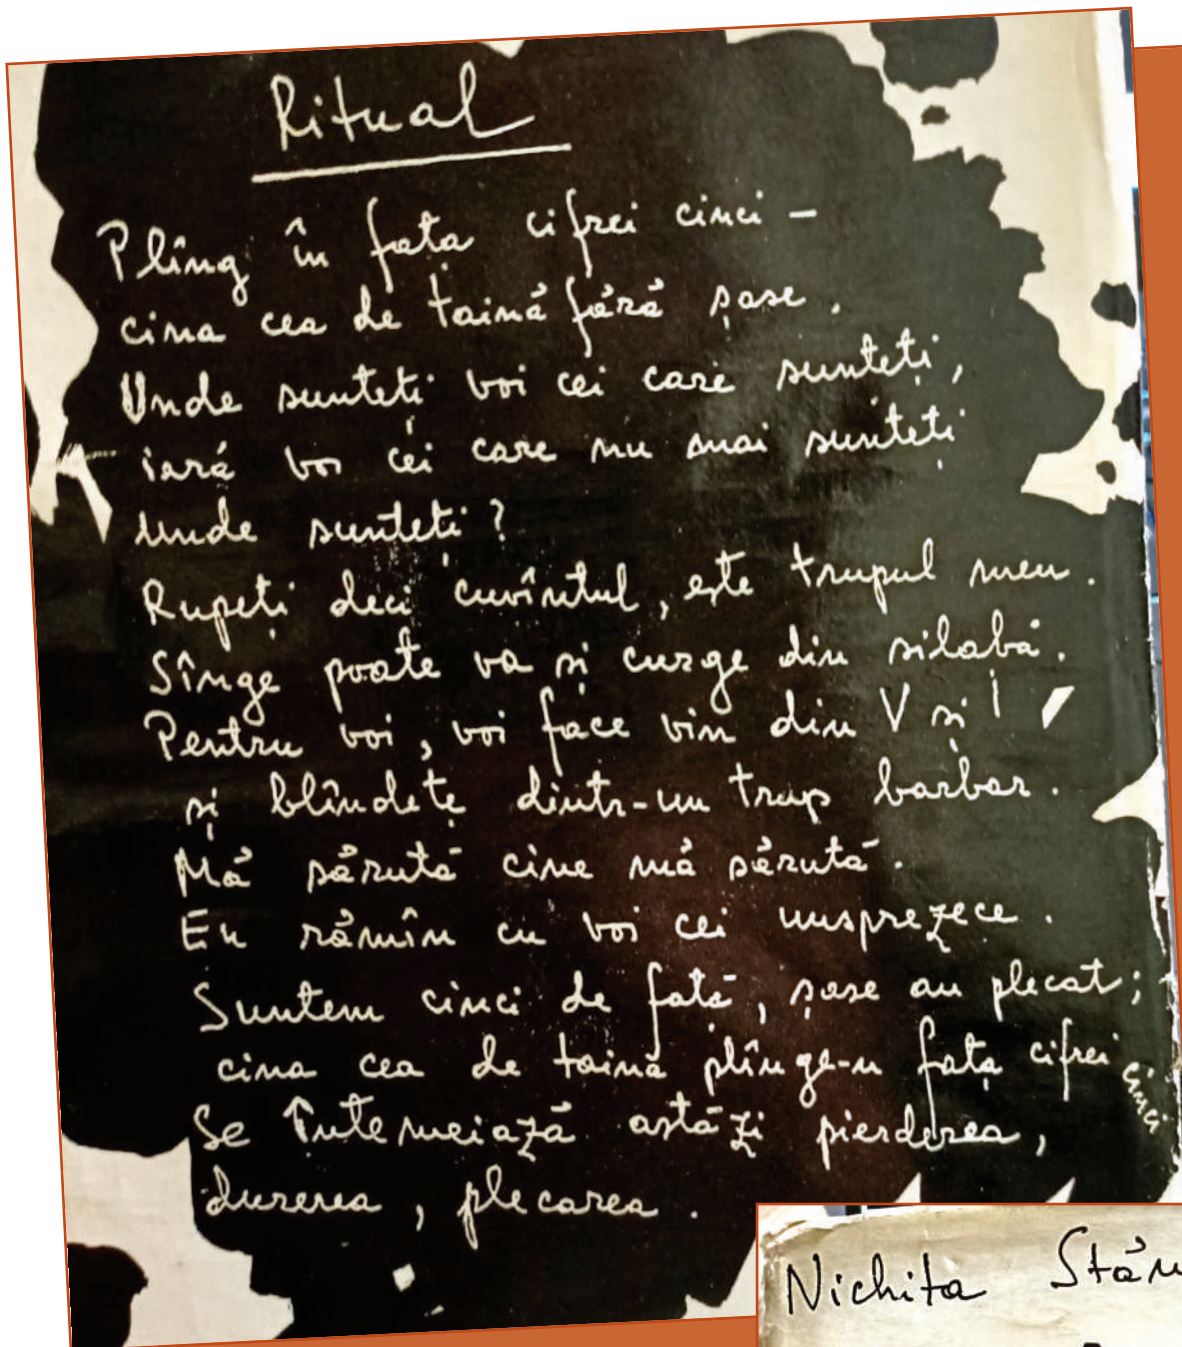 Ritual
Plîng în fața cifrei cinci –
cina cea de taină fără șase.
Unde sunteți voi cei care sunteți,
iară voi cei care nu mai sunteți
unde sunteți?
Rupeți deci cuvîntul, este trupul meu.
Sînge poate va și curge din silabă.
Pentru voi, voi face vin din V și I
și blîndețe dintr-un trup barbar.
Mă sărută cine mă sărută.
Eu rămîn cu voi cei unsprezece.
Suntem cinci de față, șase au plecat;
cina cea de taină plînge-n fața cifrei cinci
Se întemeiază astăzi pierderea,
durerea, plecarea.
Nichita Stăn